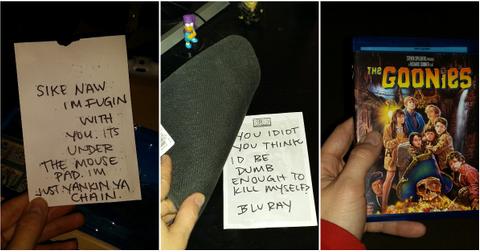 SIKE NAW
IM FUGIN
WITH
YOU. ITS
UNDER
THE MOUSE
PAD. IM
JUST YANKIN YA
CHAIN.
YOU IDIOT
YOU THINK
ID BE
DUMB
ENOUGH TO
KILL MYSELF?
BLU RAY
STEVEN SPIELBERG
A RICHARD DONNER
THE GOONIES